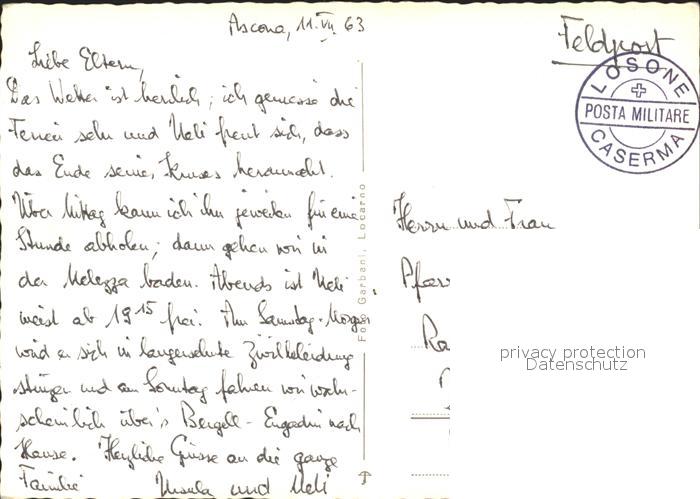 Ascona, 11. VII. 63
Liebe Eltern,
Das Wetter ist herrlich; ich geniesse die
Ferien sehr und Ueli freut sich, dass
das Ende seines Kurses herannaht.
Über Mittag kann ich ihn jeweilen für eine
Stunde abholen; dann gehen wir in
der Melezza baden. Abends ist Ueli
meist ab 19 15 frei. Am Samstag-Morgen
wird er sich in langersehnte Zivilkleidung
stürzen und am Sonntag fahren wir wahr-
scheinlich über's Bergell-Engadin nach
Hause. Herzliche Grüsse an die ganze
Familie Ursula und Ueli
Foto Garbani, Locarno
Feldpost
LOSONE
POSTA MILITARE
CASERMA
Herrn und Frau
Pfar
Ra
privacy protection
Datenschutz